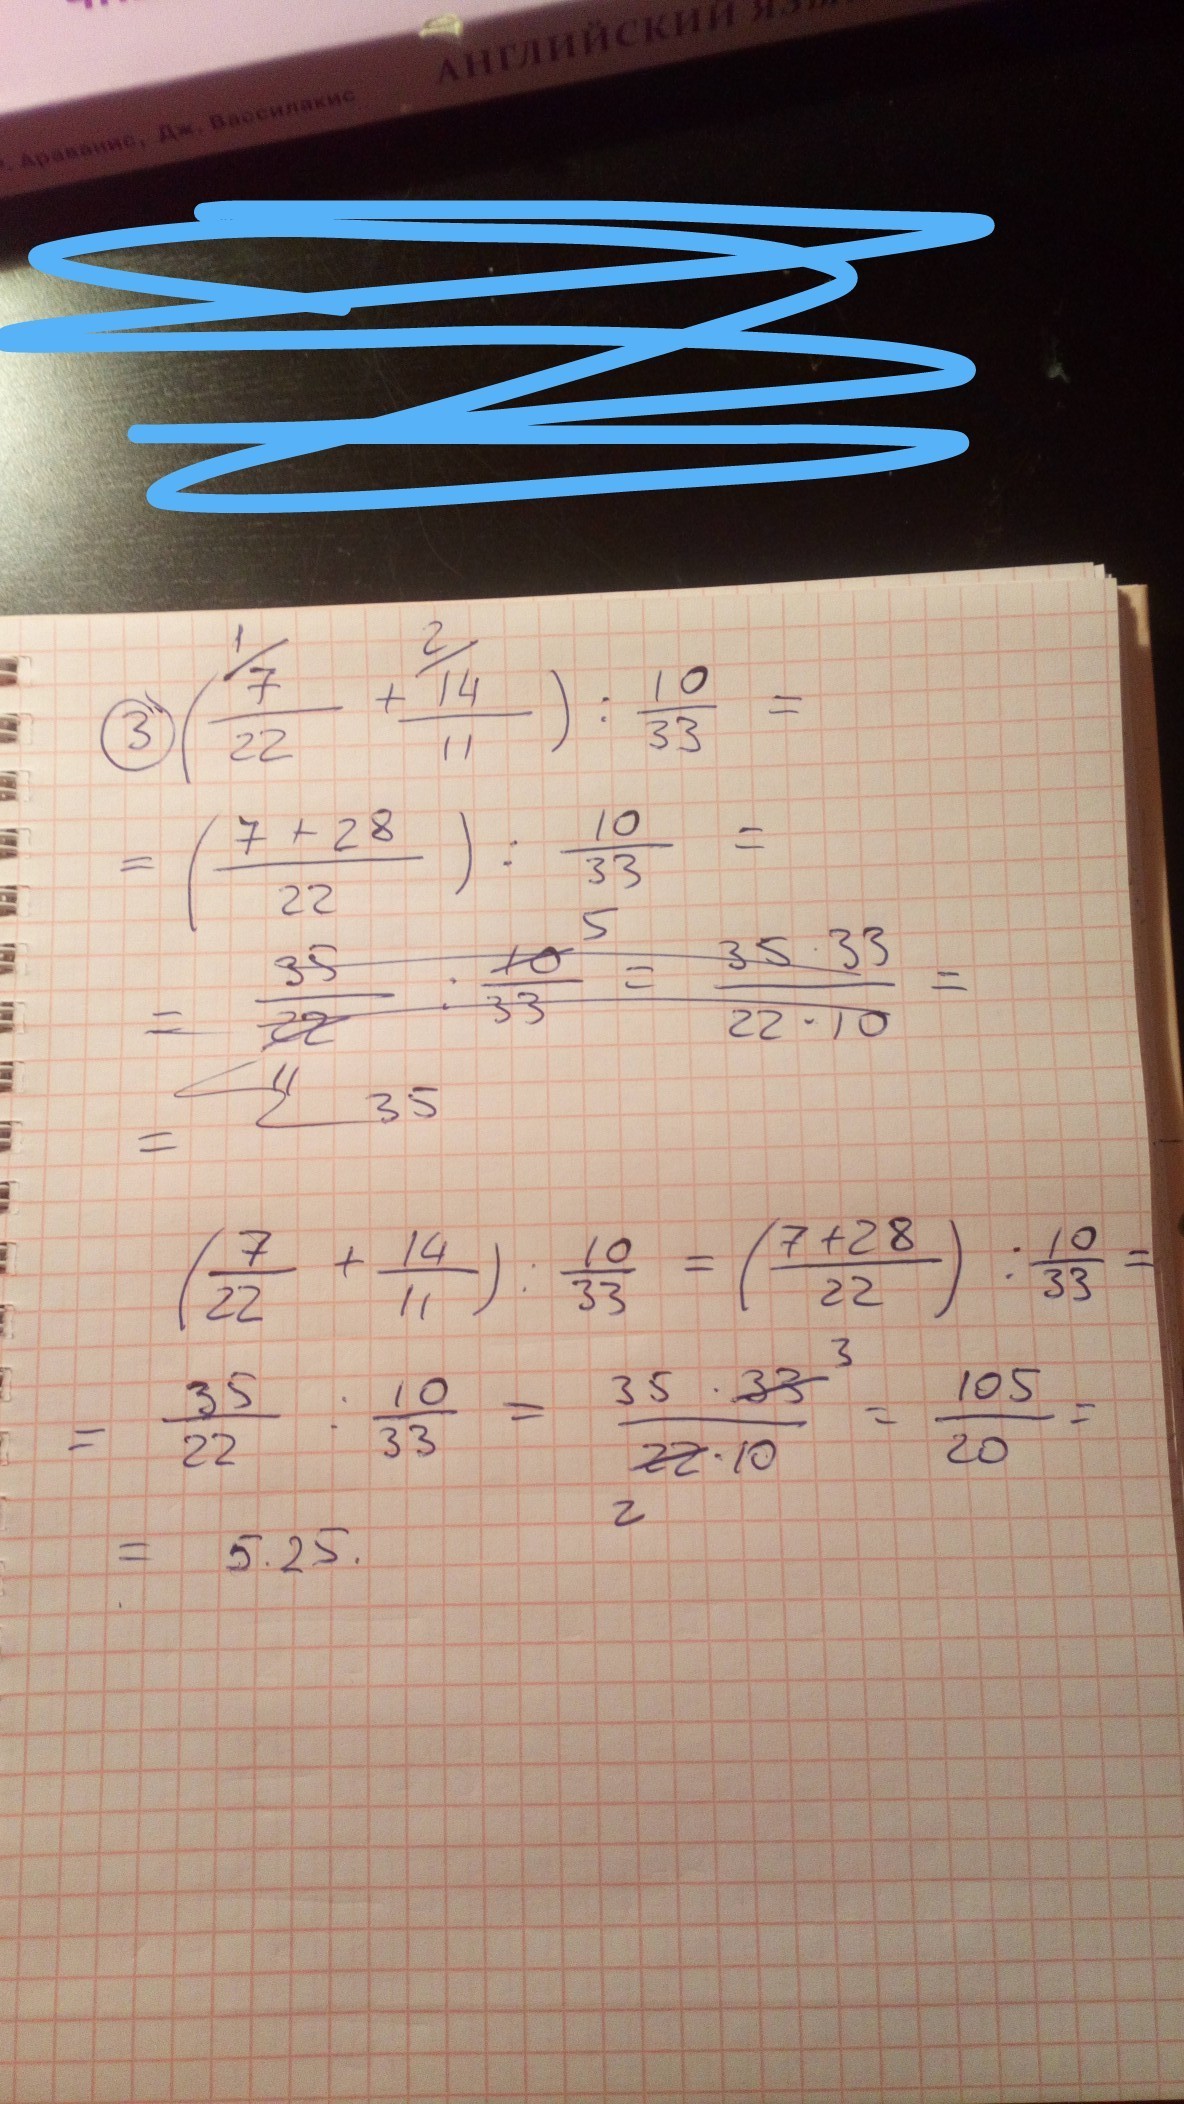 АНГЛИЙСКИЙ
Араванис, Дж. Вассилакис
3) (7/22 + 14/11) : 10/33 =
= ((7 + 28)/22) : 10/33 =
= 35/22 : 10/33 = (35 · 33)/(22 · 10) =
= 35
(7/22 + 14/11) : 10/33 = ((7+28)/22) : 10/33 =
= 35/22 : 10/33 = (35 · 33)/(22 · 10) = 105/20 =
= 5.25.